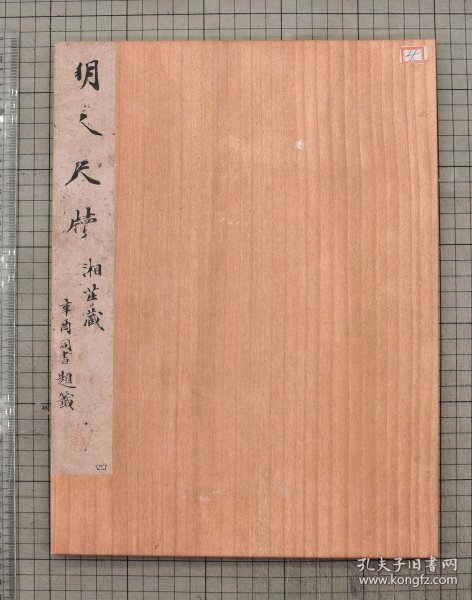 明人尺牘
湘芷藏
辛酉同書題籤
四
4
孔夫子旧书网
www.kongfz.com